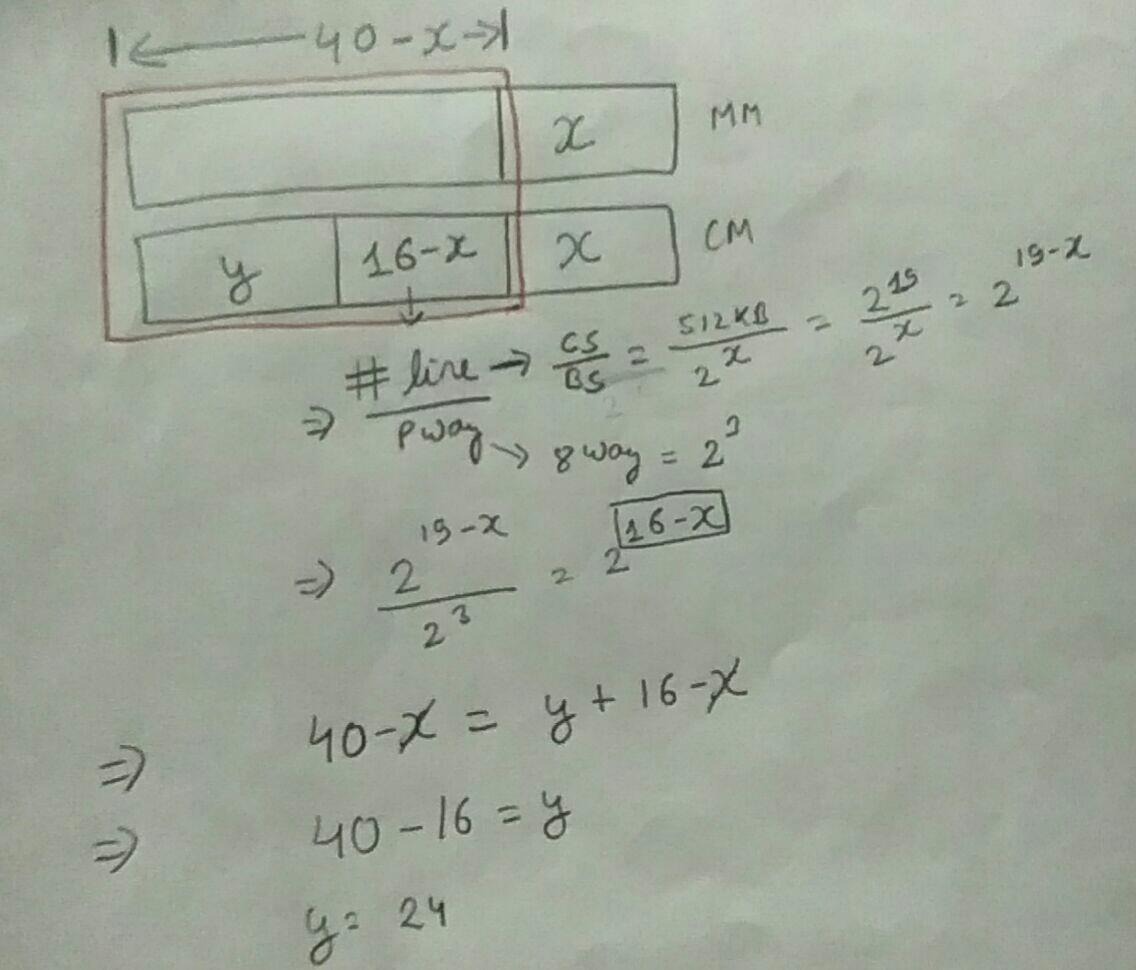 |← 40-x →|
x MM
y 16-x x CM
⇒ # line / P way
→ CS/BS = 512KB/2^x = 2^19/2^x = 2^19-x
→ 8 way = 2^3
⇒ 2^19-x / 2^3 = 2^16-x
⇒ 40-x = y + 16-x
⇒ 40-16 = y
y = 24